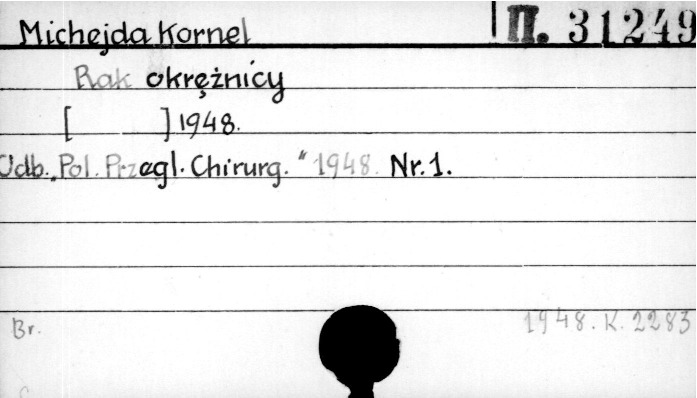 Michejda Kornel II. 31249
Rak okrężnicy
[ ] 1948.
Odb. "Pol. Przegl. Chirurg." 1948. Nr. 1.
Br. 1948. K. 2283